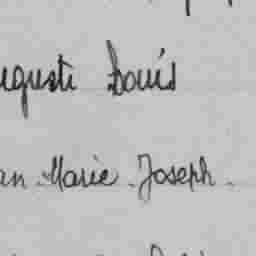 uguste Louis
an-Marie-Joseph-